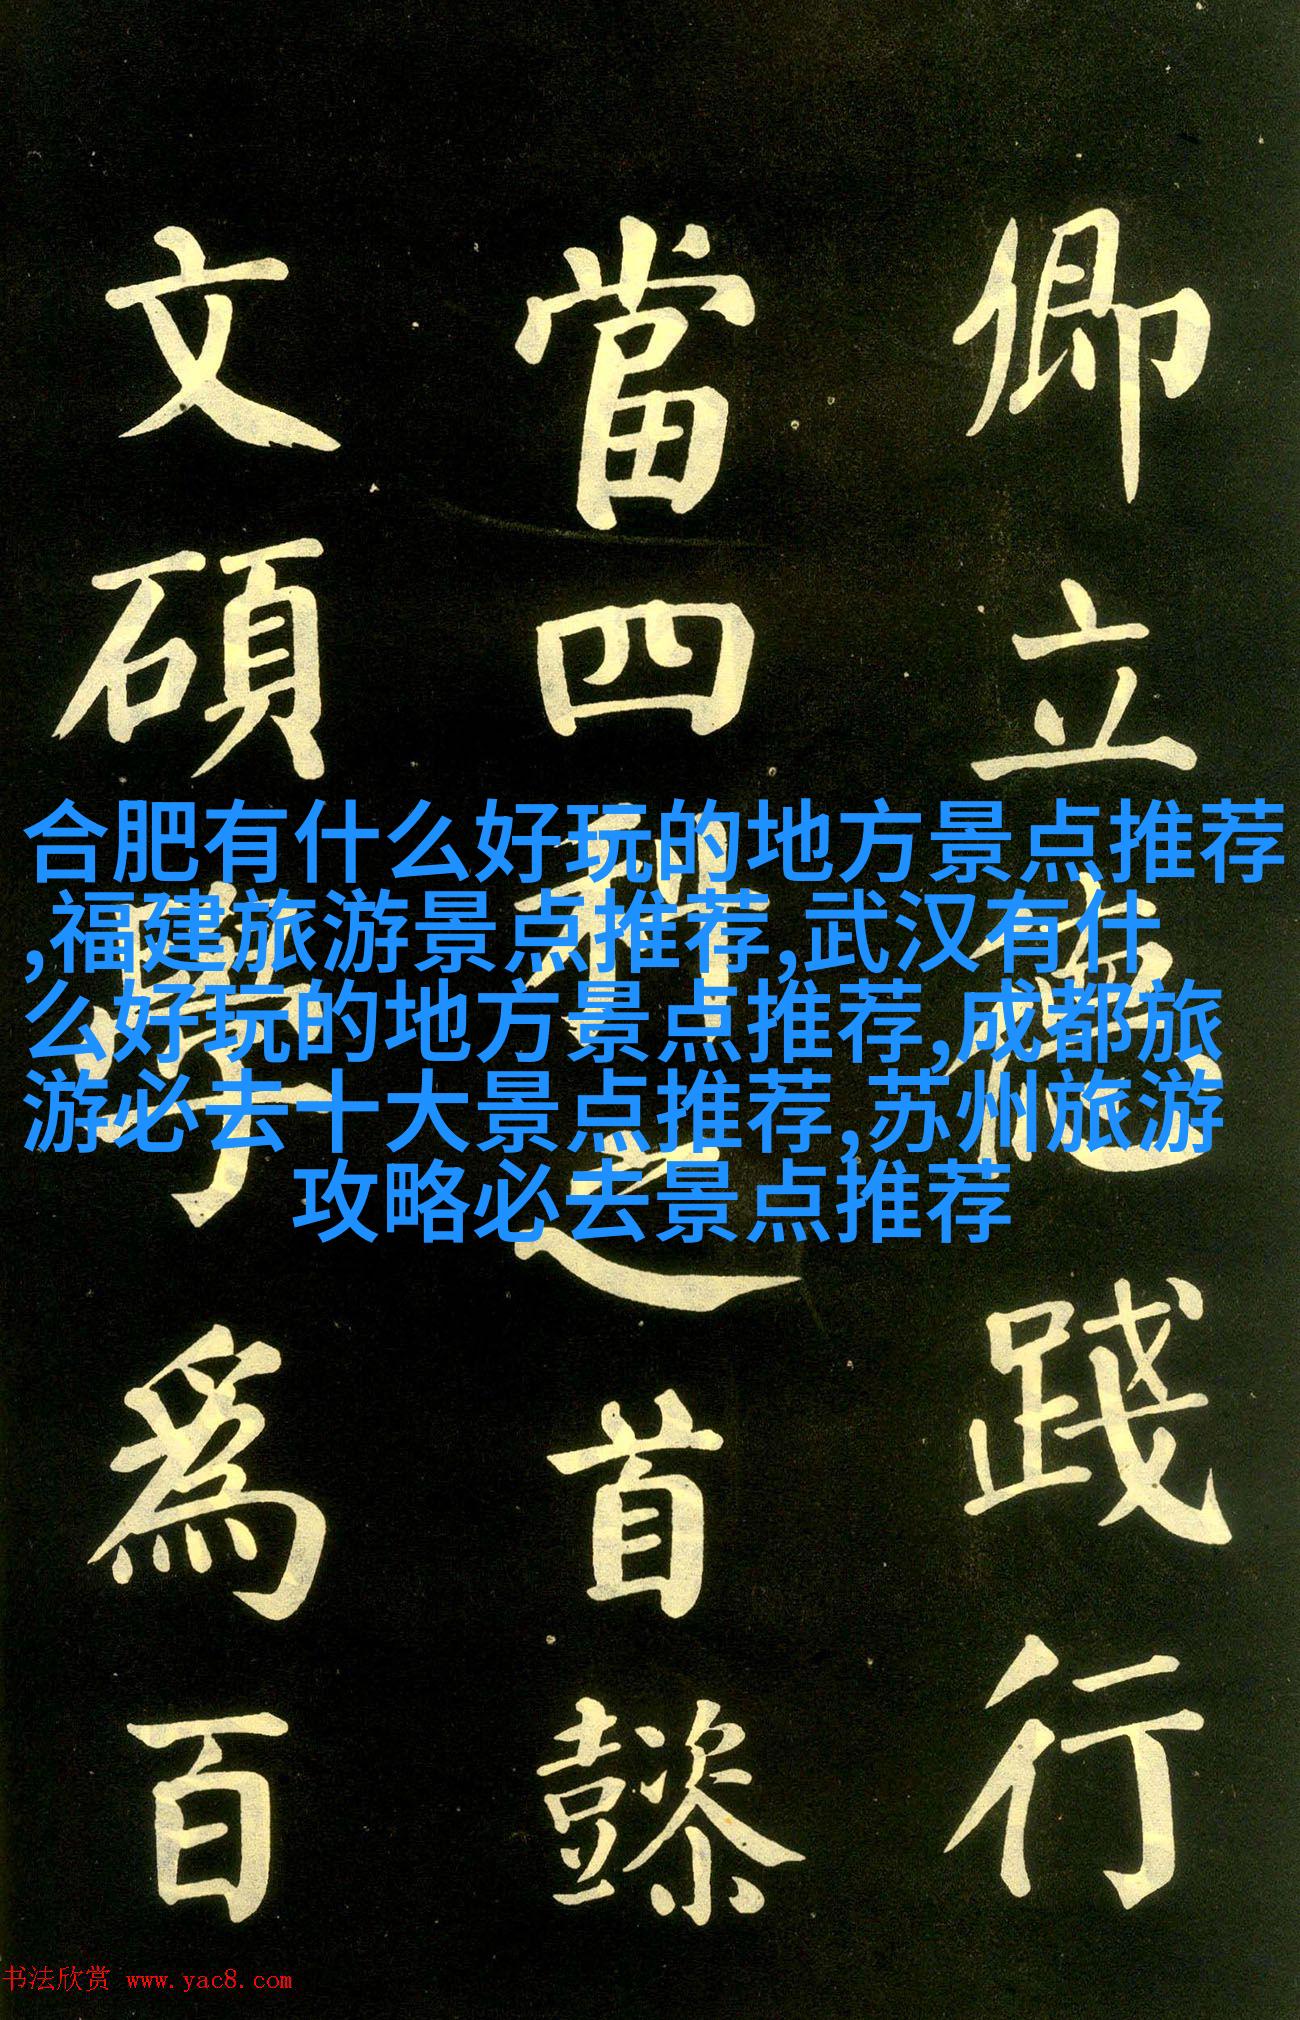 卿立德踐行
當四科之首懿
文碩學爲百
合肥有什么好玩的地方景点推荐
,福建旅游景点推荐,武汉有什
么好玩的地方景点推荐,成都旅
游必去十大景点推荐,苏州旅游
攻略必去景点推荐
书法欣赏 www.yac8.com